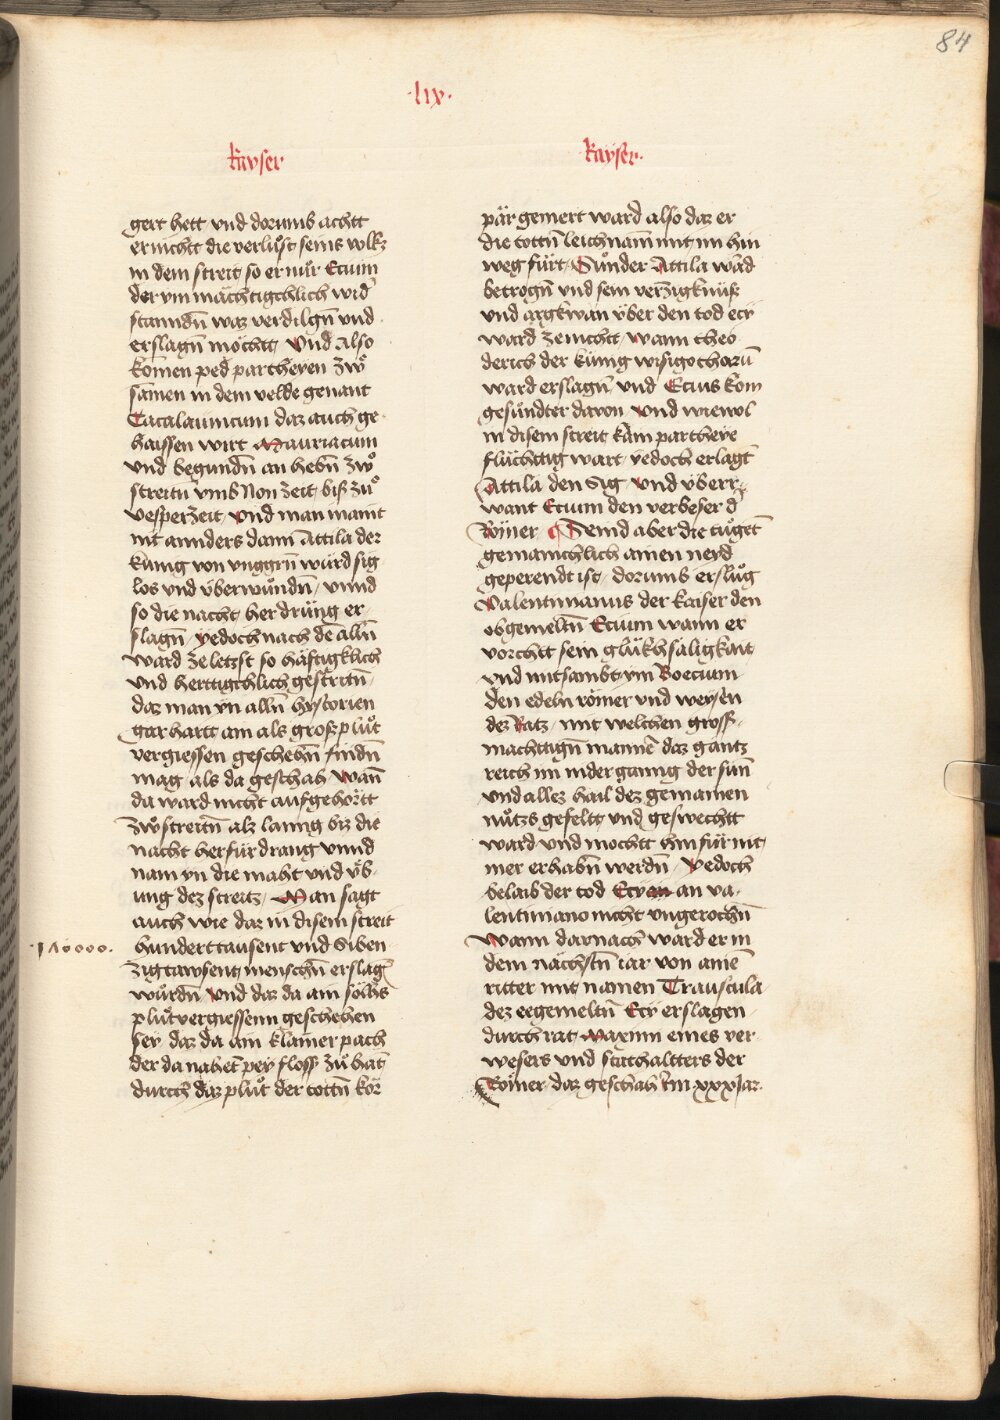 84
·lix·
kayser
gert hett vnd dorumb achtt
er nichtt die verlust seins volkz
in dem streit so er nür Ecium
der ym mächtigchlich wid̕
stanndn̄ waz verdilgn̄ vnd
erslagn̄ möchtt / Vnd Also
komen ped partheyen zwͦ
samen in dem velde genant
Catalaunicum daz auch ge
haissen wirt Mauriacum
vnd begundn̄ an hebn̄ zwͦ
streitn vmb Non zeit biß zuͦ
vesper zeit / Vnd man maint
nit annders dann Attila der
künig von vnggrn̄ würd sig
los vnd vberwundn̄ / vnnd
so die nacht her drüng er
slagn̄ / yedoch nach dē alln̄
ward ze letzst so häftigklich
vnd herttigchlich gestritn̄
daz man yn alln̄ hystorien
gar hartt ain als groß pluͦt
vergiessen geschehn̄ findn̄
mag als da geschah / Wan̄
da ward nicht aufgehörtt
zwͦ streitn̄ alz lanng biz die
nacht herfür drang vnnd
nam yn die maht vnd vͤb
ung dez streitz / Man sagt
auch wie daz in disem streit
·1Λ0000·
hundert tausent vnd Siben
zig tawsent menschn̄ erslagn̄
wurdn̄ Vnd daz da ain sölhs
pluͦtvergiessenn geschehen
sey daz da ain klainer pach
der da nahet pey floss zuͦ hat
durch daz pluͦt der tottn̄ kör
kayser·
pär gemert ward also daz er
die tottn̄ leichnam̄ mit im hin
weg fürt / Sunder Attila wa̅d
betrogn̄ vnd sein verzigknüß
vnd argkwan vber den tod ecÿ
ward ze nichtt / wann theo
derich der künig wisigothorū
ward erslagn̄ vnd Ecius kom
gesündter darvon Vnd wiewol
in disem streit kain partheye
flüchttig wart / yedoch erlagt
Attila den Sig Vnd vberr
want Ecium den verweser d̕
Römer ¶ Seind aber die tuget
gemainchlich ainen neyd
geperendt ist / dorumb ersluͦg
Valentinianus der kaiser den
obgemeltn̄ Ecium wann er
vorchtt sein glükhsäligkait
vnd mitsambt ym Boecium
den edeln römer vnd weysen
dez Ratz / mit welchen gross
mächttign̄ mannē daz gantz
reich im nidergannig der sun̄
vnd allez hail dez gemainen
nutzs gefeltt vnd geswechtt
ward vnd mochtt hinfür nit
mer erhabn̄ werdn̄ / Yedoch
belaib der tod Ecy an va
lentiniano nicht vngerochn̄
Wann darnach ward er in
dem nächstn̄ iar von ainē
ritter mit namen Trauscula
dez eegemeltn̄ Ecÿ erslagen
durch rat Maximi eines ver
wesers vnd statthaltters der
Römer / daz geschah im xxx Jar